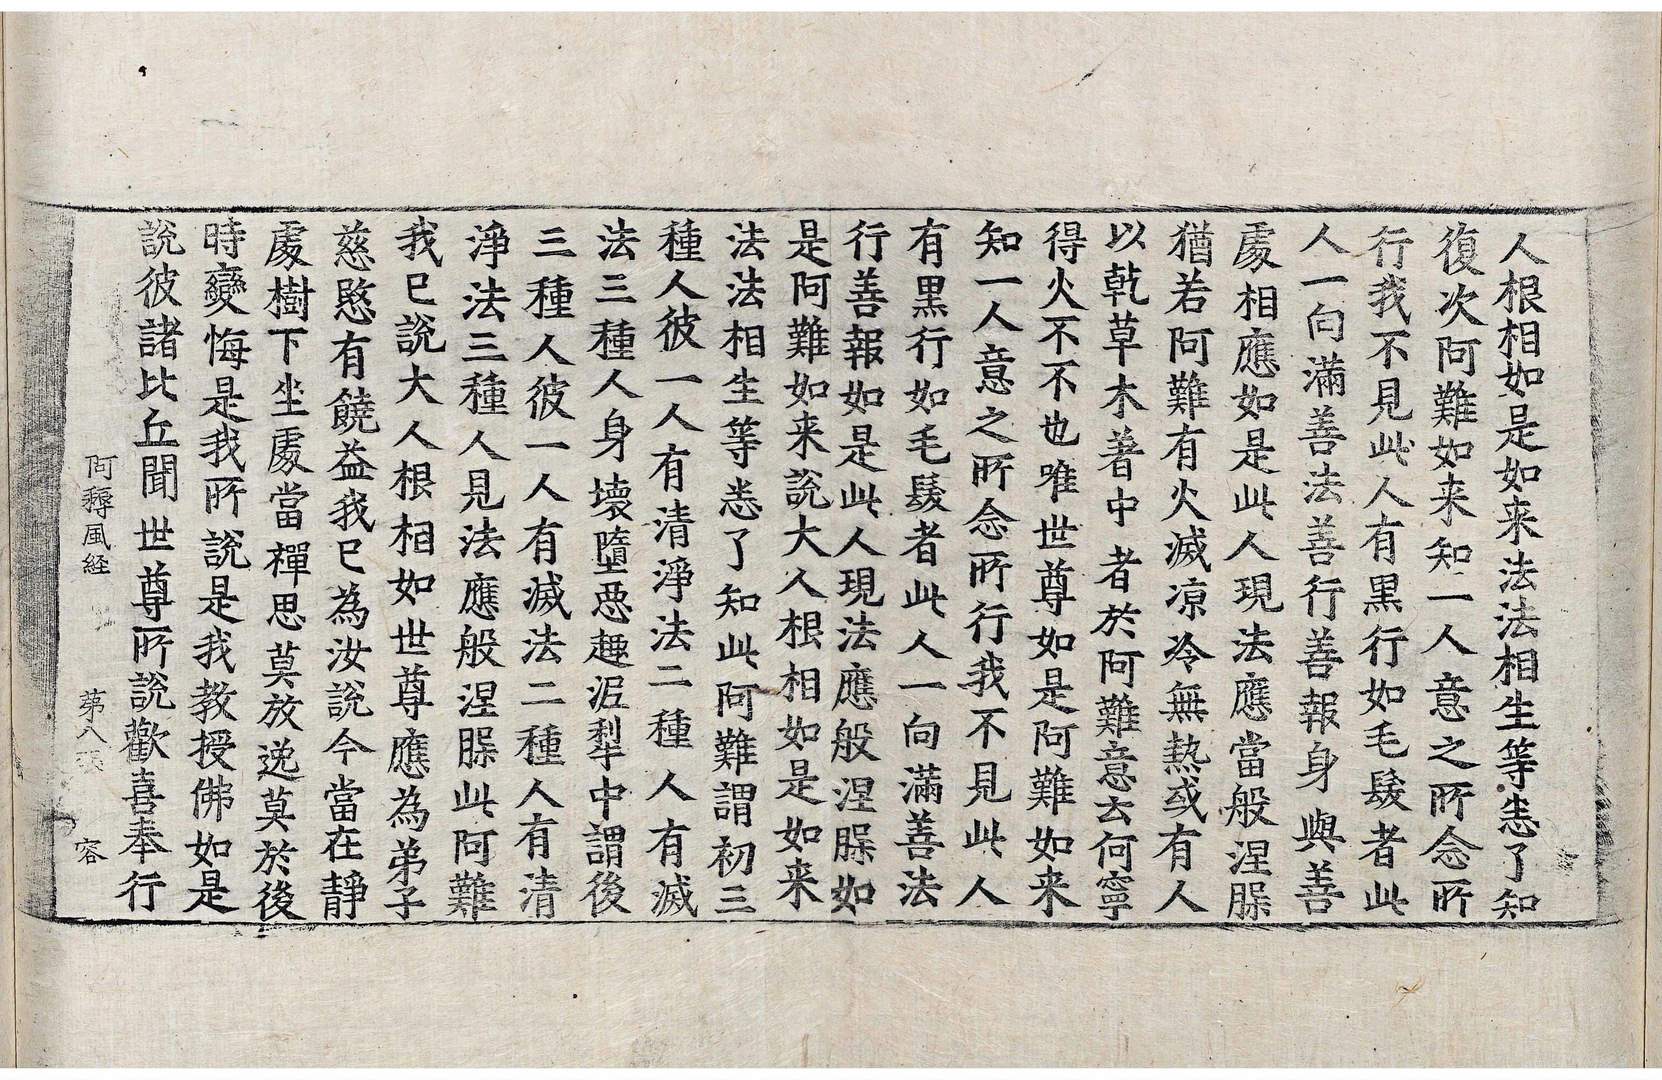 人根相如是如来法法相生等恚了知
復次阿難如来知一人意之所念所
行我不見此人有黒行如毛髮者此
人一向滿善法善行善報身與善
處相應如是此人現法應當般涅㬸
猶若阿難有火滅凉冷無熱或有人
以乹草木著中者於阿難意云何寧
得火不不也唯世尊如是阿難如来
知一人意之所念所行我不見此人
有黒行如毛髮者此人一向滿善法
行善報如是此人現法應般涅㬸如
是阿難如来説大人根相如是如来
法法相生等恚了知此阿難謂初三
種人彼一人有清淨法二種人有滅
法三種人身壊墮惡趣泥犁中謂後
三種人彼一人有滅法二種人有清
淨法三種人見法應般涅㬸此阿難
我已説大人根相如世尊應為弟子
慈愍有饒益我已為汝説今當在靜
處樹下坐處當禪思莫放逸莫於後
時變悔是我所説是我教授佛如是
説彼諸比丘聞世尊所説歡喜奉行
阿耨風経 第八張 容